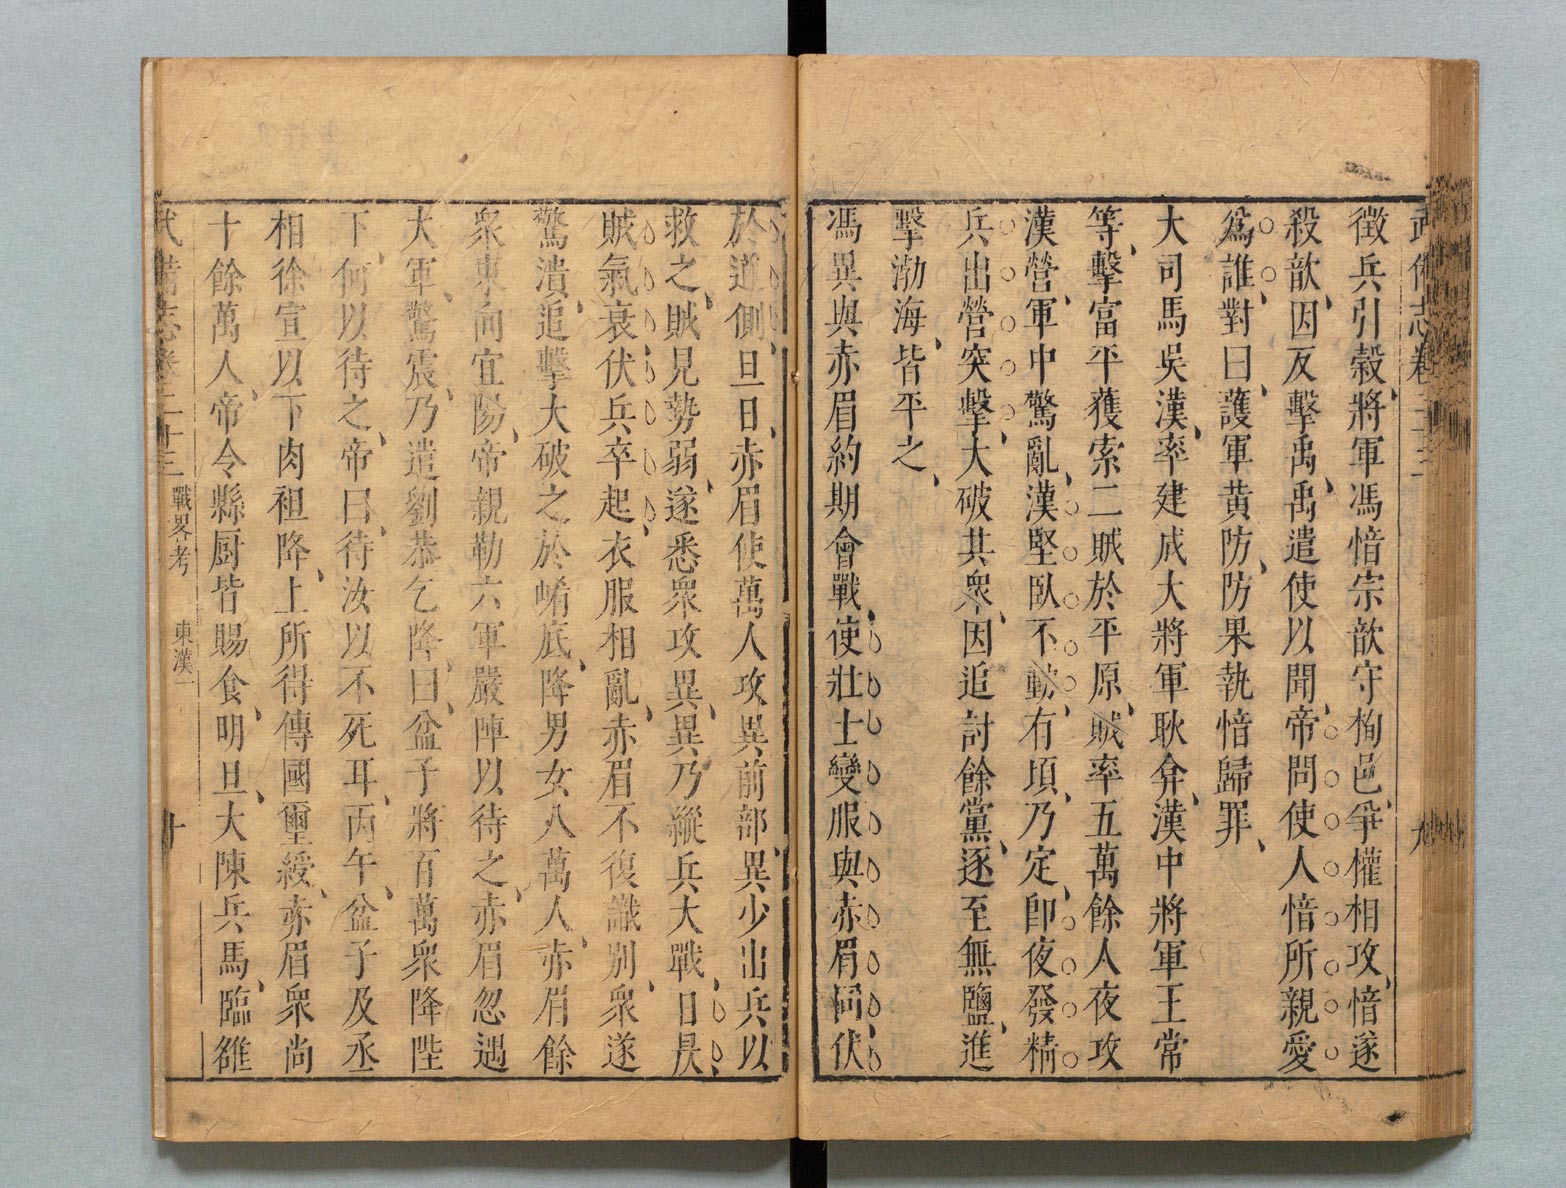 武備志卷二十三
九
徵兵引穀、將軍馮愔宗歆守栒邑、爭權相攻、愔遂
殺歆、因反擊禹、禹遣使以聞、帝問使人愔所親愛
為誰、對曰、護軍黃防、防果執愔歸罪、
大司馬吳漢、率建威大將軍耿弇、漢中將軍王常
等、擊富平獲索二賊於平原、賊率五萬餘人夜攻
漢營、軍中驚亂、漢堅臥不動、有頃、乃定、卽夜發精
兵出營突擊、大破其衆、因追討餘黨、逐至無鹽、進
擊渤海、皆平之、
馮異與赤眉約期會戰、使壯士變服與赤眉同、伏
於道側、旦日、赤眉使萬人攻異前部、異少出兵以
救之、賊見勢弱、遂悉衆攻異、異乃縱兵大戰、日昃、
賊氣衰伏兵卒起、衣服相亂、赤眉不復識别、衆遂
驚潰、追擊大破之於崤底、降男女八萬人、赤眉餘
衆東向宜陽、帝親勒六軍嚴陣以待之、赤眉忽遇
大軍、驚震、乃遣劉恭乞降、曰、盆子將百萬衆降陛
下、何以待之、帝曰、待汝以不死耳、丙午、盆子及丞
相徐宣以下肉袒降、上所得傳國璽綬、赤眉衆尚
十餘萬人、帝令縣厨皆賜食、明旦、大陳兵馬、臨雒
武備志卷二十三 戰畧考 東漢一 十